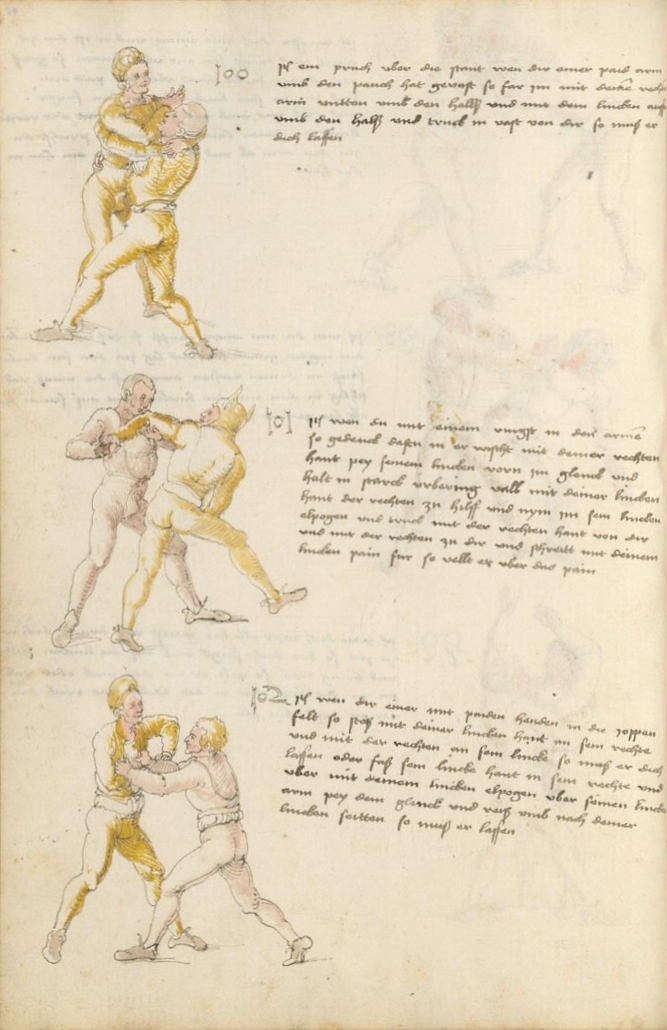 100
Jtz ein pruch vber die stant wen dir einer paid arm
vmb den pauch hat gevast so far jm mit deine rech
arm vntten vmb den halß vnd mit dem lincken auß
vmb den halß vnd truck in vast von dir so muß er
dich lassen
101
Jtz wen du mit einem ringst in den armē
so gedenck dastu in er wischt mit deiner rechten
hant pey seinem lincken vorn jm glenck vnd
halt in starck vrbering vall mit deiner lincken
hant der rechten zu hilff vnd nym jm sein lincken
elpogen vnd truck mit der rechten hant von dir
vnd mit der rechten zu dir vnd schreitt mit deinem
lincken pain fur so vellt er vber das pain
102
Jtz wen dir einer mit paiden henden in die joppen
felt so stoß mit deiner lincken hant an sein rechte
vnd mit der rechten an sein lincke so muß er dich
lassen oder faß sein lincke hant in sein rechte vnd
vber mit deinem lincken elpogen vber seinen lincke
arm pey dem glenck vnd reiß vmb nach deiner
lincken seitten so muß er lassen